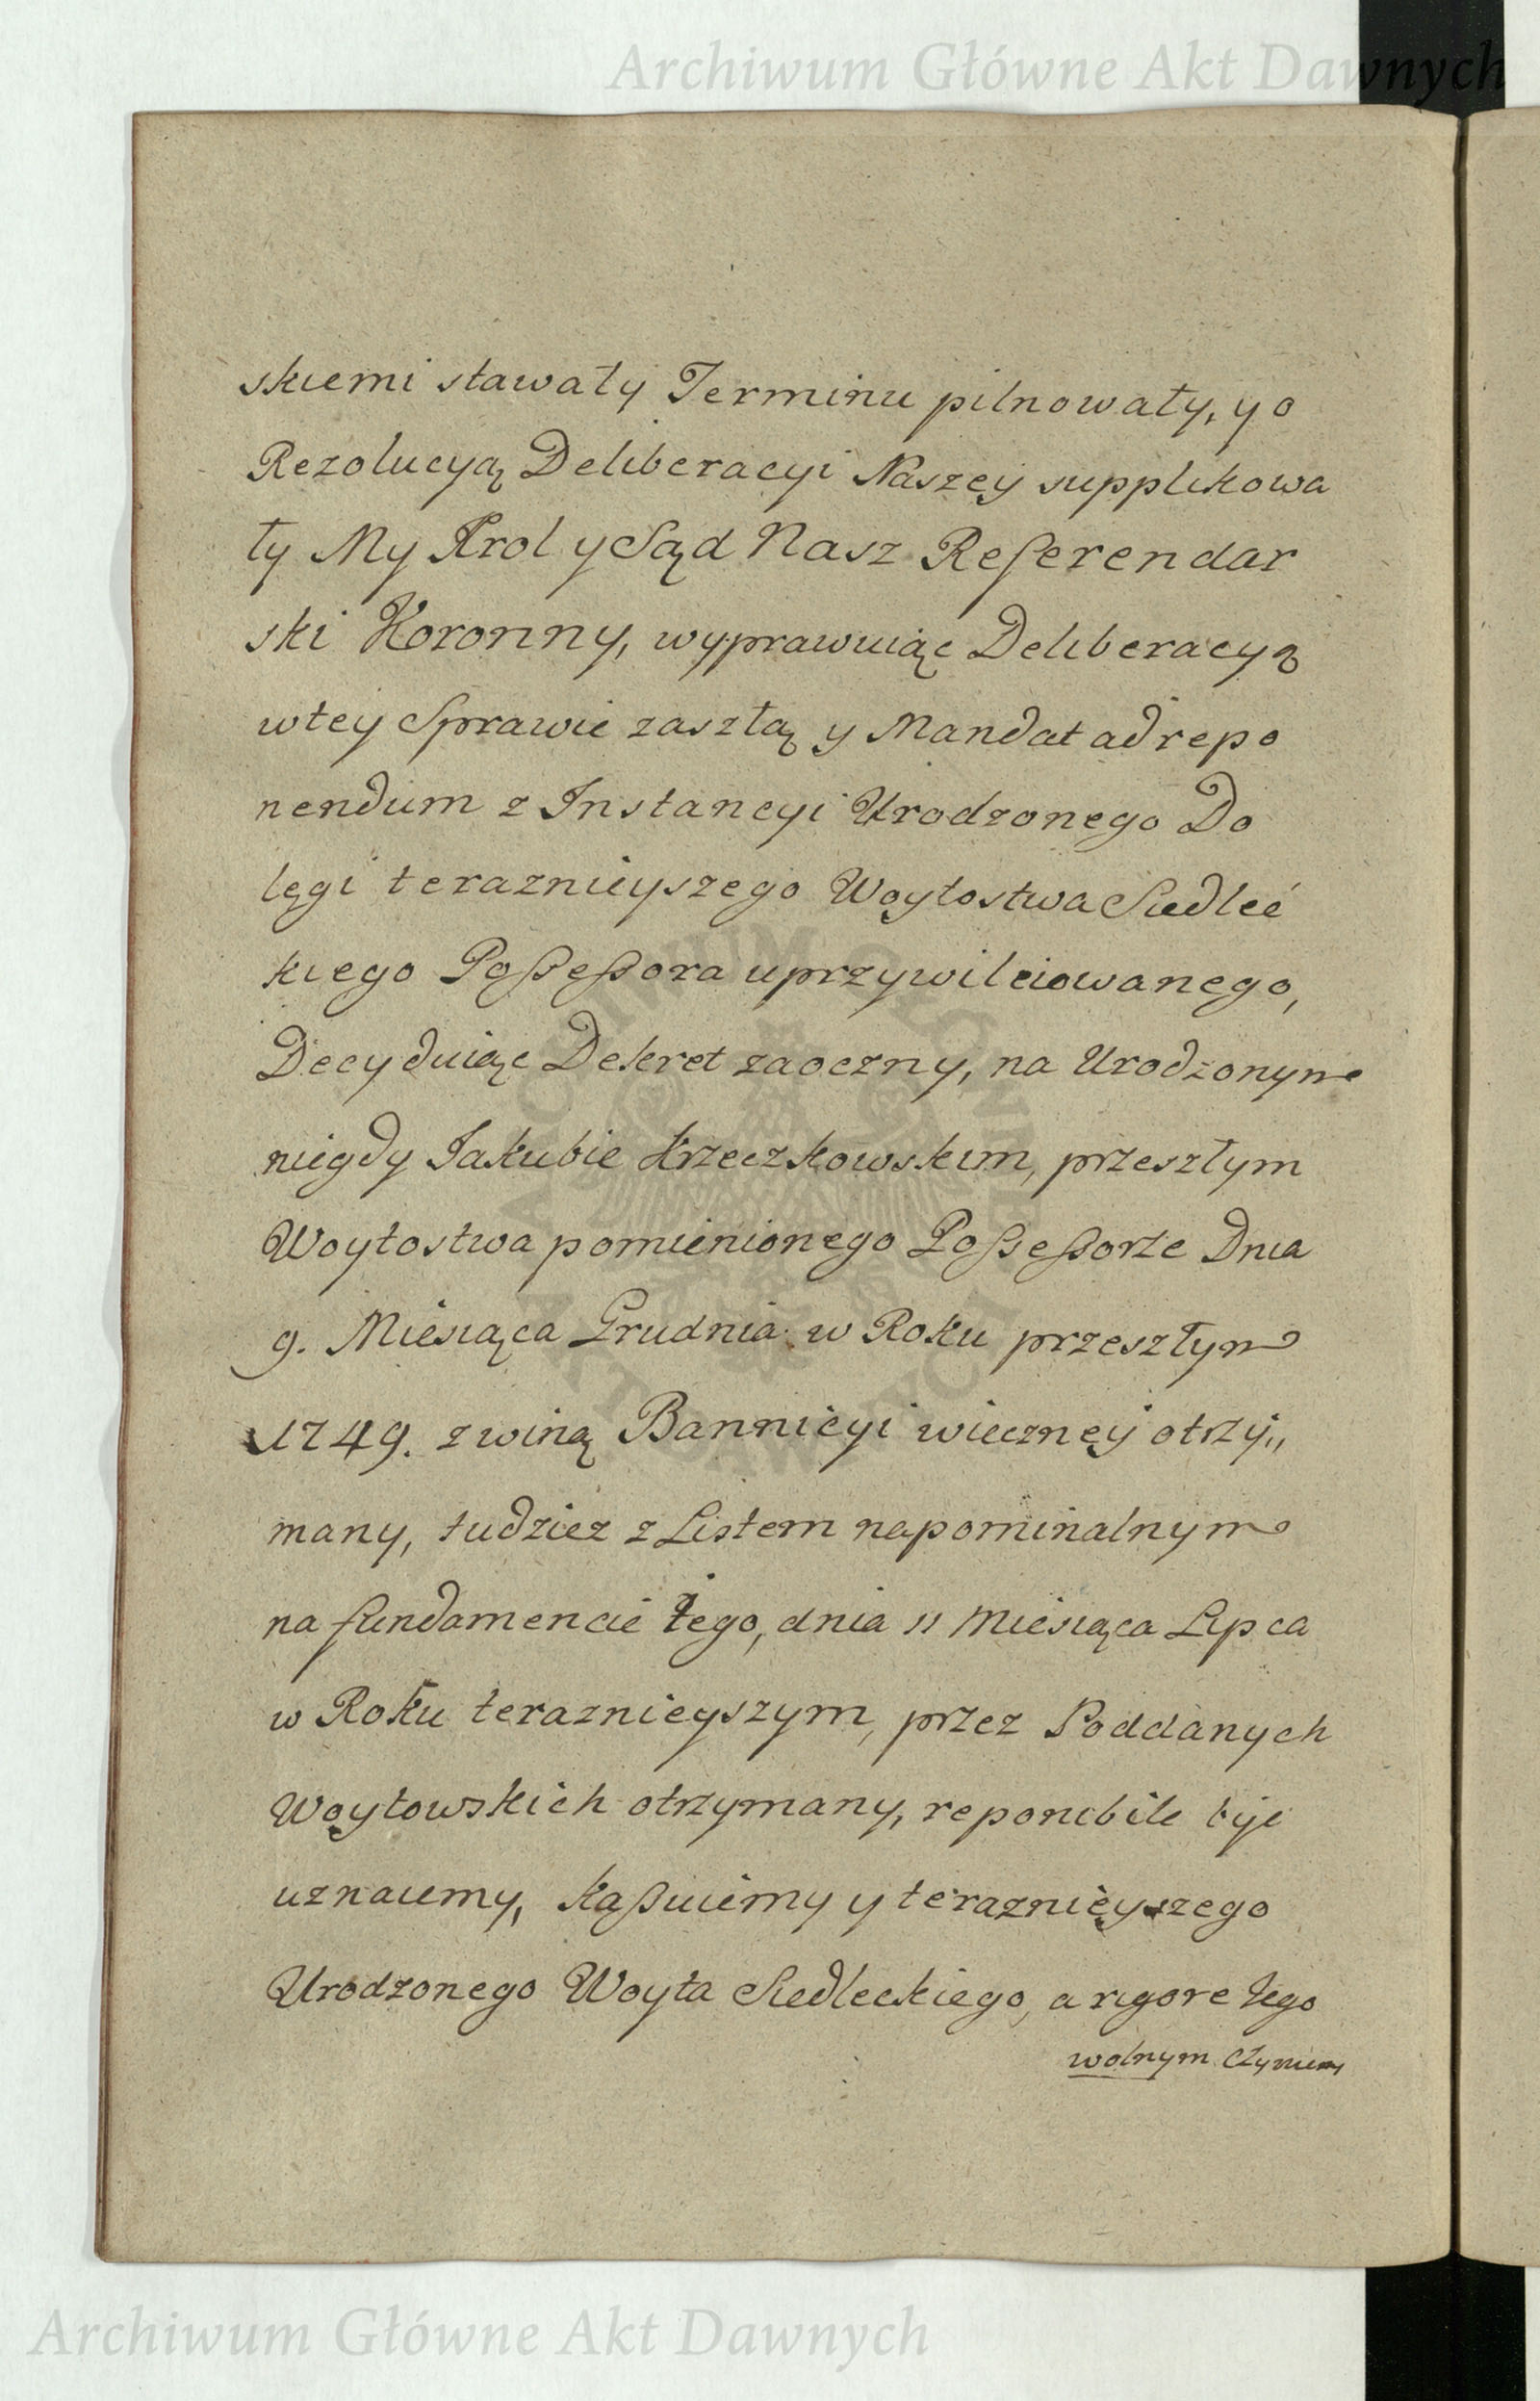 Archiwum Główne Akt Dawnych
skiemi stawały Terminu pilnowały, y o
Rezolucyą Deliberacyi Naszęy supplikowa
ły My Krol y Sąd Nasz Referendar
ski Koronny, wyprawuiąc Deliberacyą
w tey Sprawie zaszłą y Mandat ad repo
nendum z Instancyi Urodzonego Do
lęgi teraznieyszego Woytostwa Siedleć
kiego Poßeßora uprzywileiowanego,
Decyduiąc Dekret zaoczny, na Urodzonym
niegdy Jakubie Krzeczkowskim, przeszłym
Woytostwa pomienionego Poßeßorze Dnia
9. Miesiąca Grudnia w Roku przeszłym
1749. z winą Bannicyi wieczney otrzy,,
many, tudziez z Listem napominalnym
na fundamencie tego, dnia 11 Miesiąca Lipca
w Roku teraznieyszym, przez Poddanych
Woytowskich otrzymany, reponibile być
uznaiemy, kaßuiemy y teraznieyszego
Urodzonego Woyta Siedleckiego, a rigore tego
wolnym Czyniemy
ARCHIWUM GŁÓWNE AKT DAWNYCH
Archiwum Główne Akt Dawnych